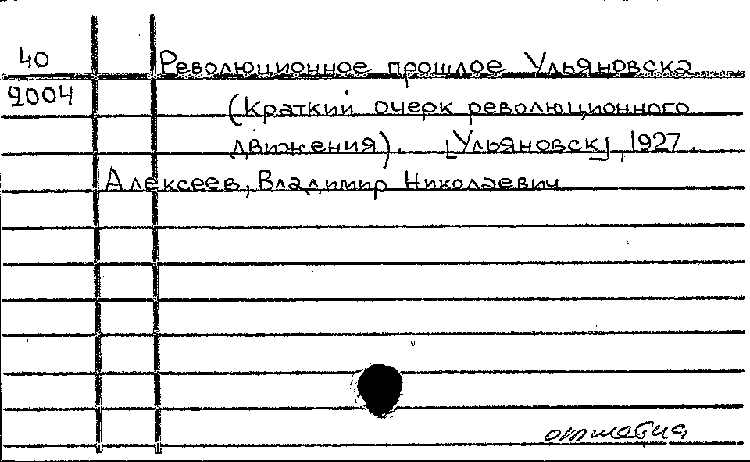 40 Революционное прошлое Ульяновска
2004 (краткий очерк революционного
движения). [Ульяновск], 1927.
Алексеев, Владимир Николаевич